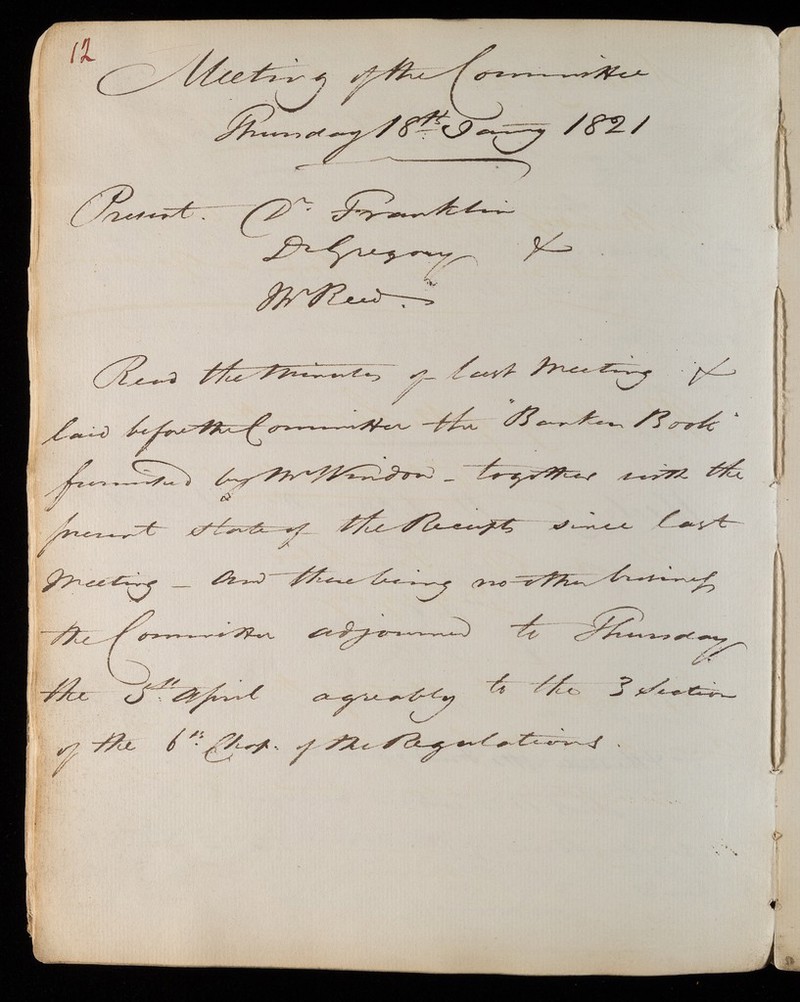 12
Meeting of the Committee
Thursday 18th Jany 1821
Present. Dr Franklin
Dr Gregory &
Mr Reed.
Read the Minutes of last Meeting &
laid before the Committee the "Banken Book"
furnished by Mr Windon - together with the
present state of the Receipts since last
Meeting - And there being no other business
the Committee adjourned to Thursday
the 5th April agreably to the 3 Section
of the 6th Chap. of the Regulations.